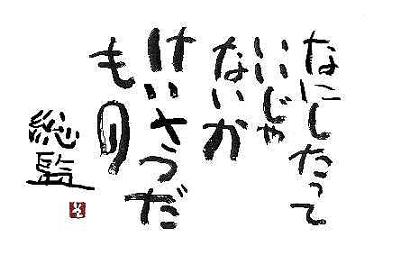 なにしたって
いいじゃ
ないか
けいさつだ
もの
総監